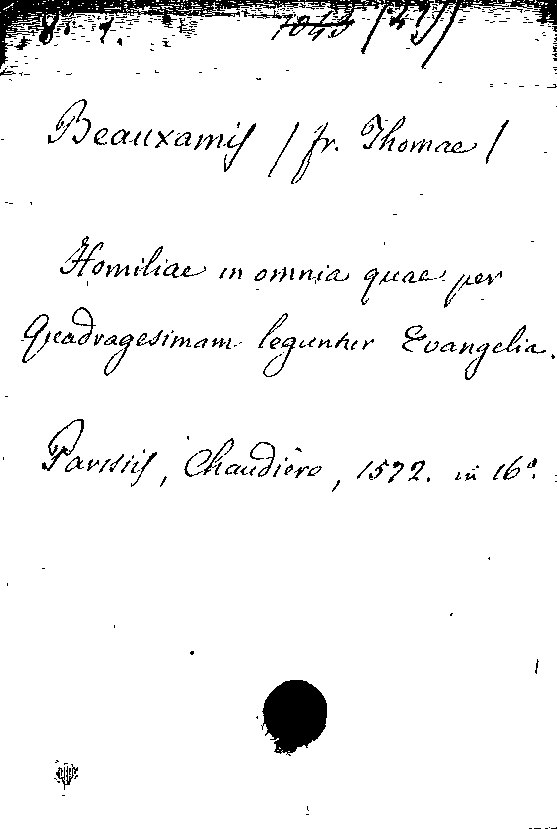 Beauxamis / fr. Thomae /
Homiliae in omnia quae per
Quadragesimam leguntur Evangelia.
Parisiis, Chaudière, 1572. in 16°.